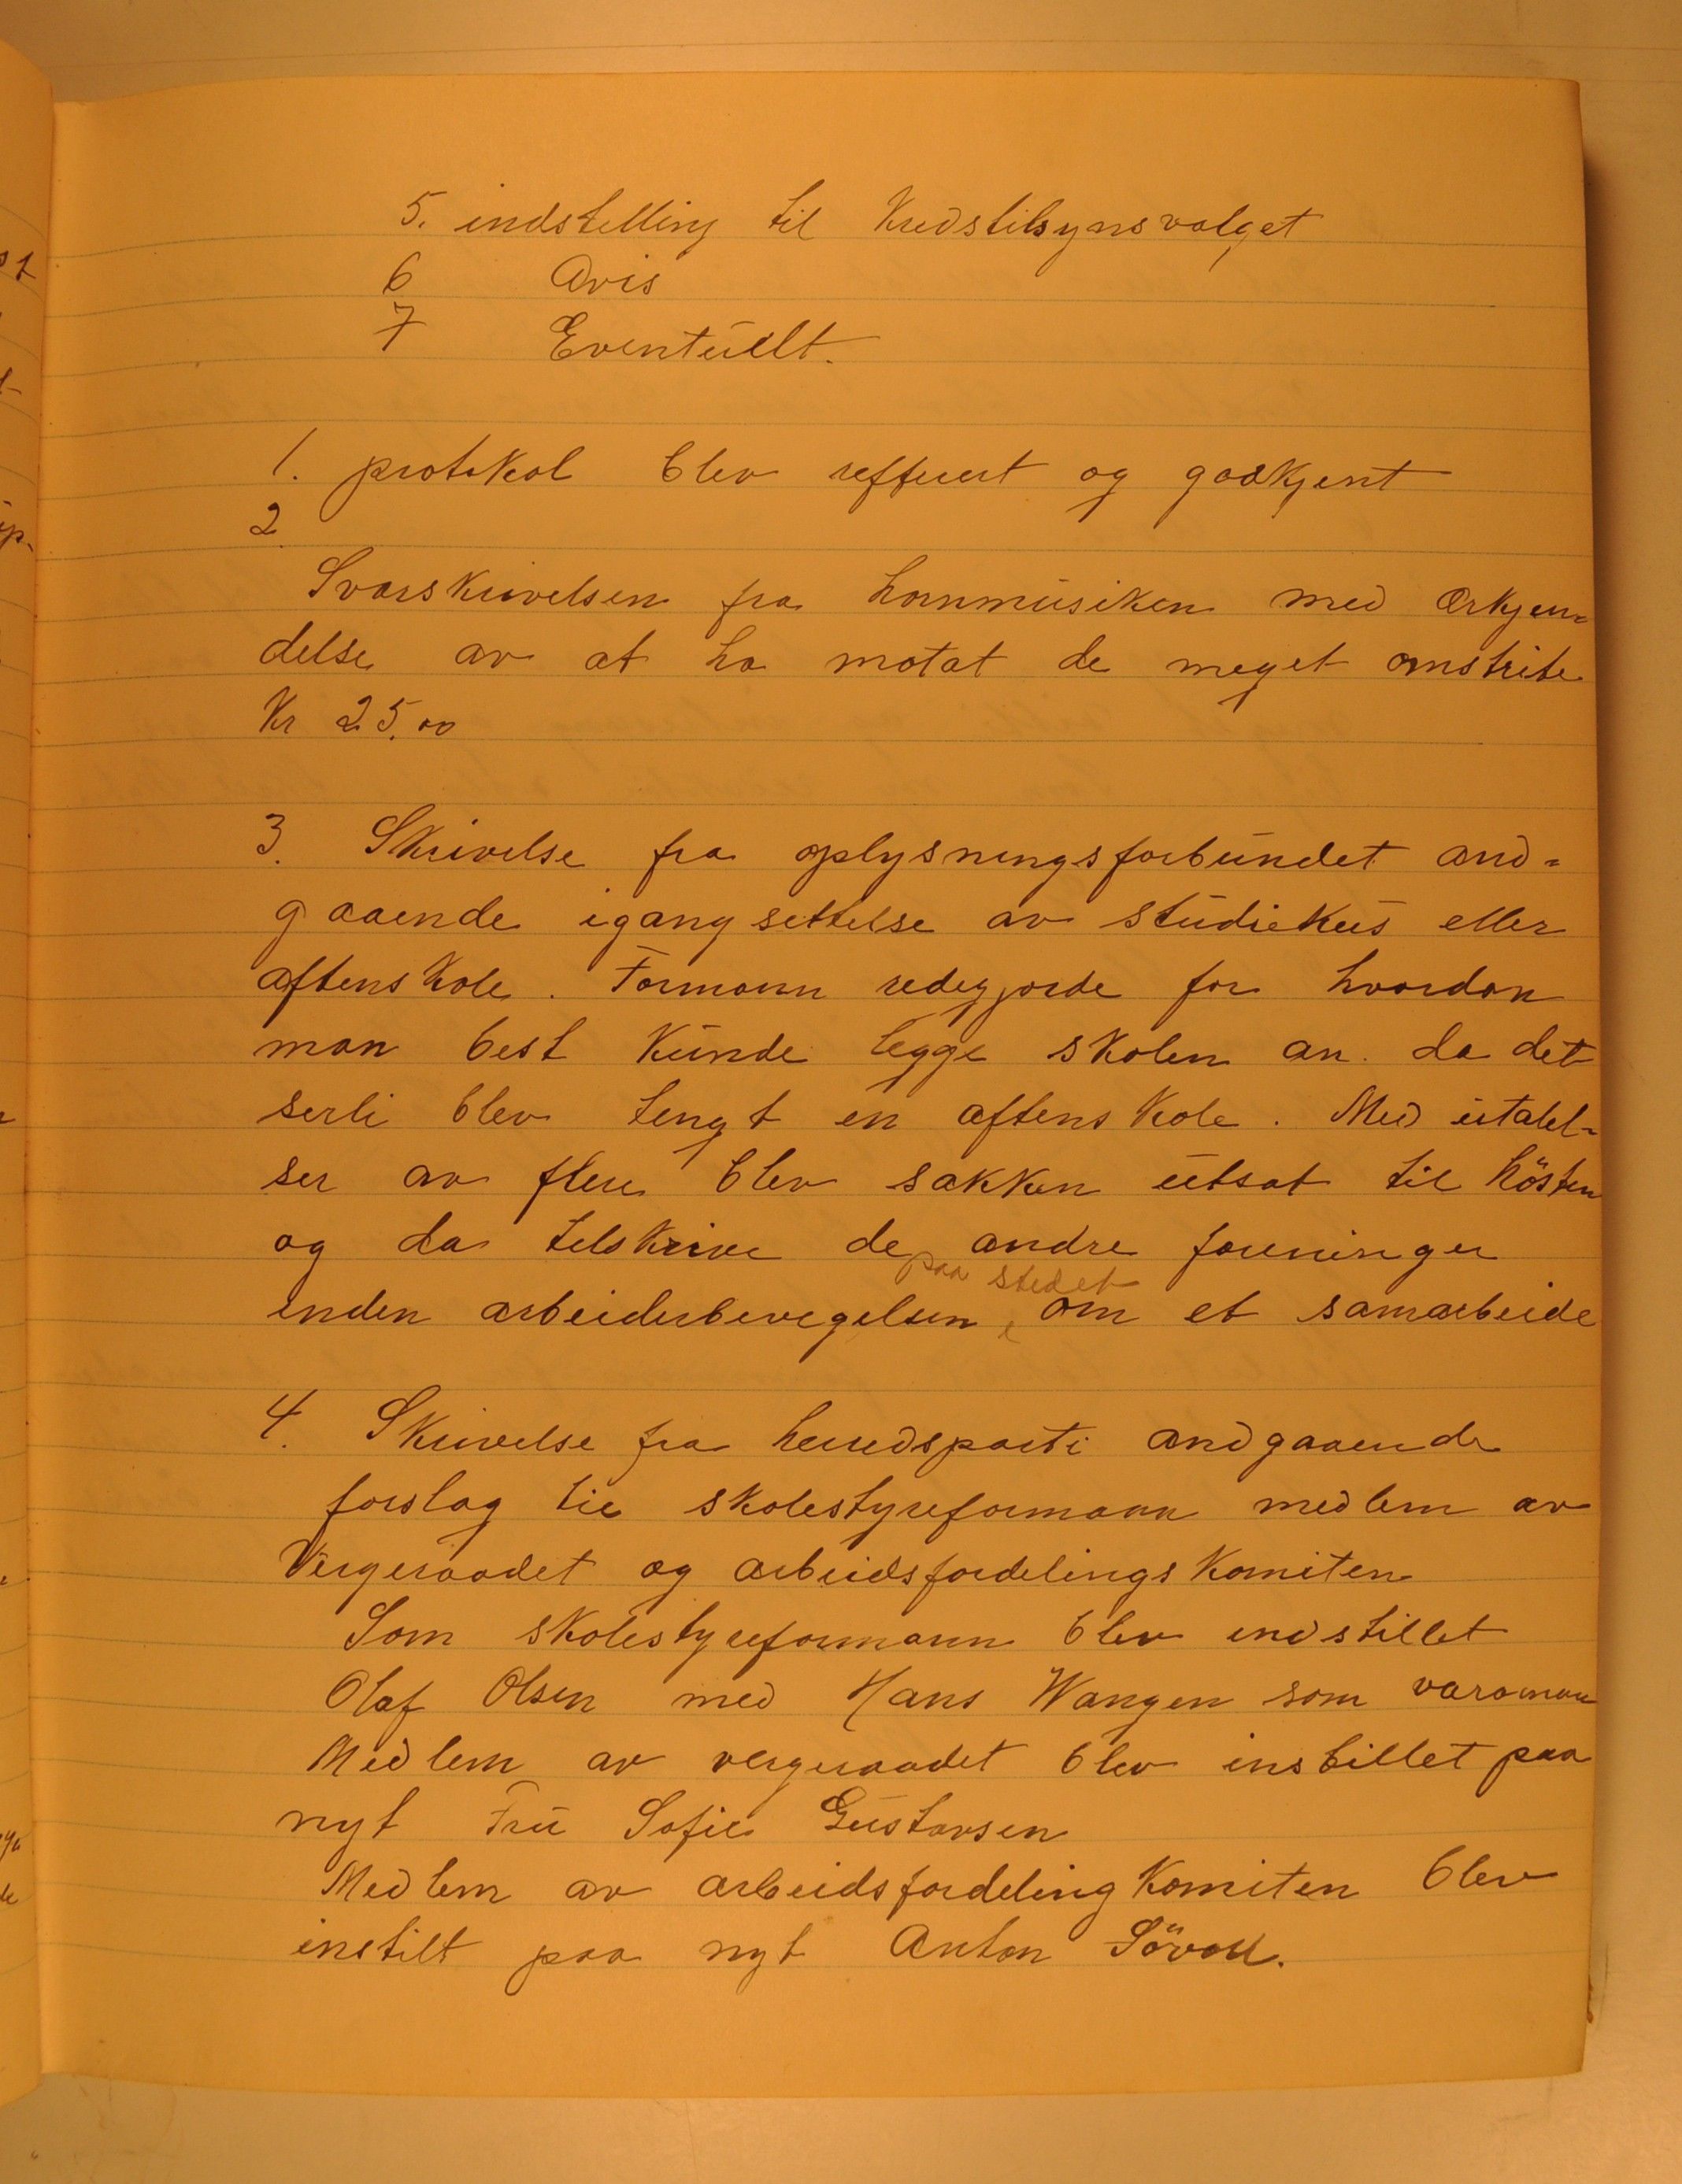 5. indstelling til Kredstilsynsvalget
6 Avis
7 Eventuelt.
1. protokol blev reffert og godkjent
2.
Svarskrivelsen fra hornmusiken med erkjen=
delse av at ha motat de meget omstrite
Kr 25.00
3. Skrivelse fra oplysningsforbundet and=
gaaende igangsettelse av studiekus eller
aftenskole. Formann redegjorde for hvordan
man best kunde legge skolen an. da det
serli blev tengt en aftenskole. Med utalel-
ser av flere blev sakken utsat til hösten
og da telskrive de andre foreninger
paa stedet
inden arbeiderbevegelsen, om et samarbeide
4. Skrivelse fra herredsparti andgaaende
forslag til skolestyreformann medlem av
Vergeraadet og arbeidsfordelingskomiten
Som skolestyreformann blev indstillet
Olaf Olsen med Hans Wangen som varaman
Medlem av vergeraadet blev instillet paa
nyt Fru Sofie Gustavsen
Medlem av arbeidsfordelingkomiten blev
instilt paa nyt Anton